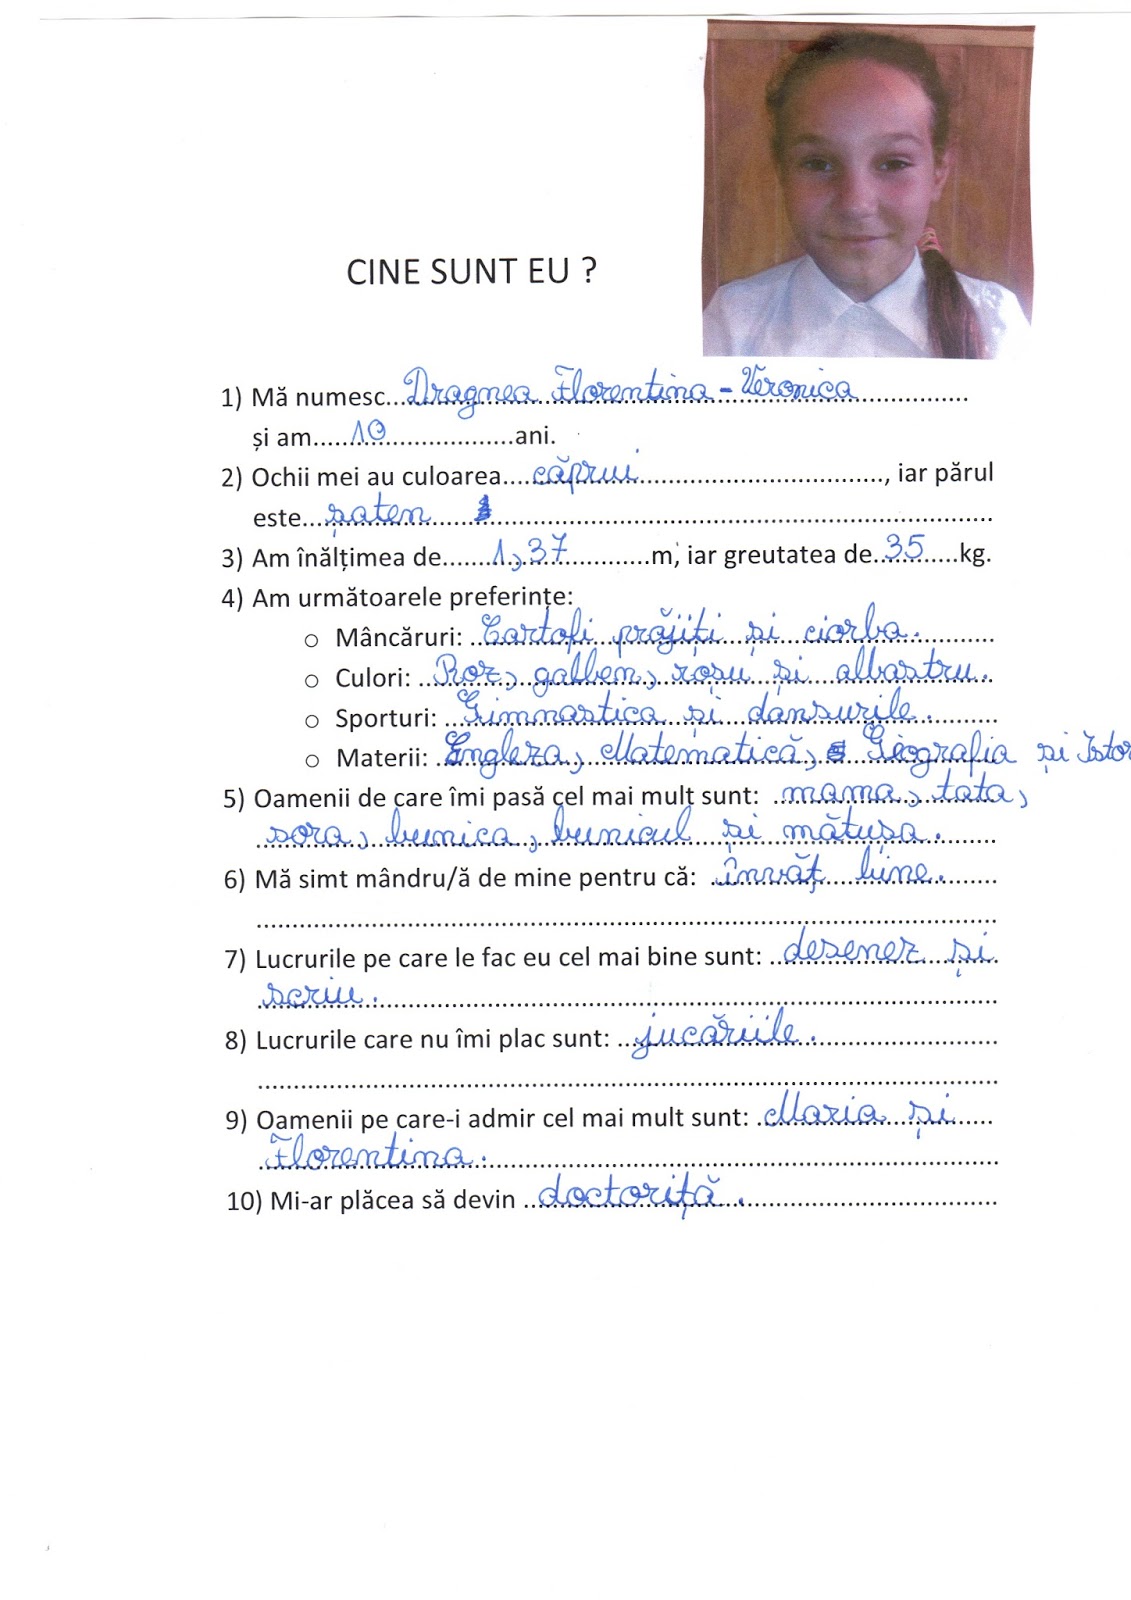 CINE SUNT EU ?
1) Mă numesc...Dragnea Florentina - Veronica...
și am...10...ani.
2) Ochii mei au culoarea...căprui..., iar părul
este...șaten...
3) Am înălțimea de...1,37...m, iar greutatea de...35...kg.
4) Am următoarele preferințe:
o Mâncăruri: ...Cartofi prăjiți și ciorba....
o Culori: ...Roz, galben, roșu și albastru....
o Sporturi: ...Gimnastica și dansurile....
o Materii: ...Engleza, Matematică, Geografia și Istor
5) Oamenii de care îmi pasă cel mai mult sunt: ...mama, tata,
sora, bunica, bunicul și mătușa....
6) Mă simt mândru/ă de mine pentru că: ...învăț bine....
7) Lucrurile pe care le fac eu cel mai bine sunt: ...desenez și
scriu....
8) Lucrurile care nu îmi plac sunt: ...jucăriile....
9) Oamenii pe care-i admir cel mai mult sunt: ...Maria și
Florentina....
10) Mi-ar plăcea să devin ...doctoriță....